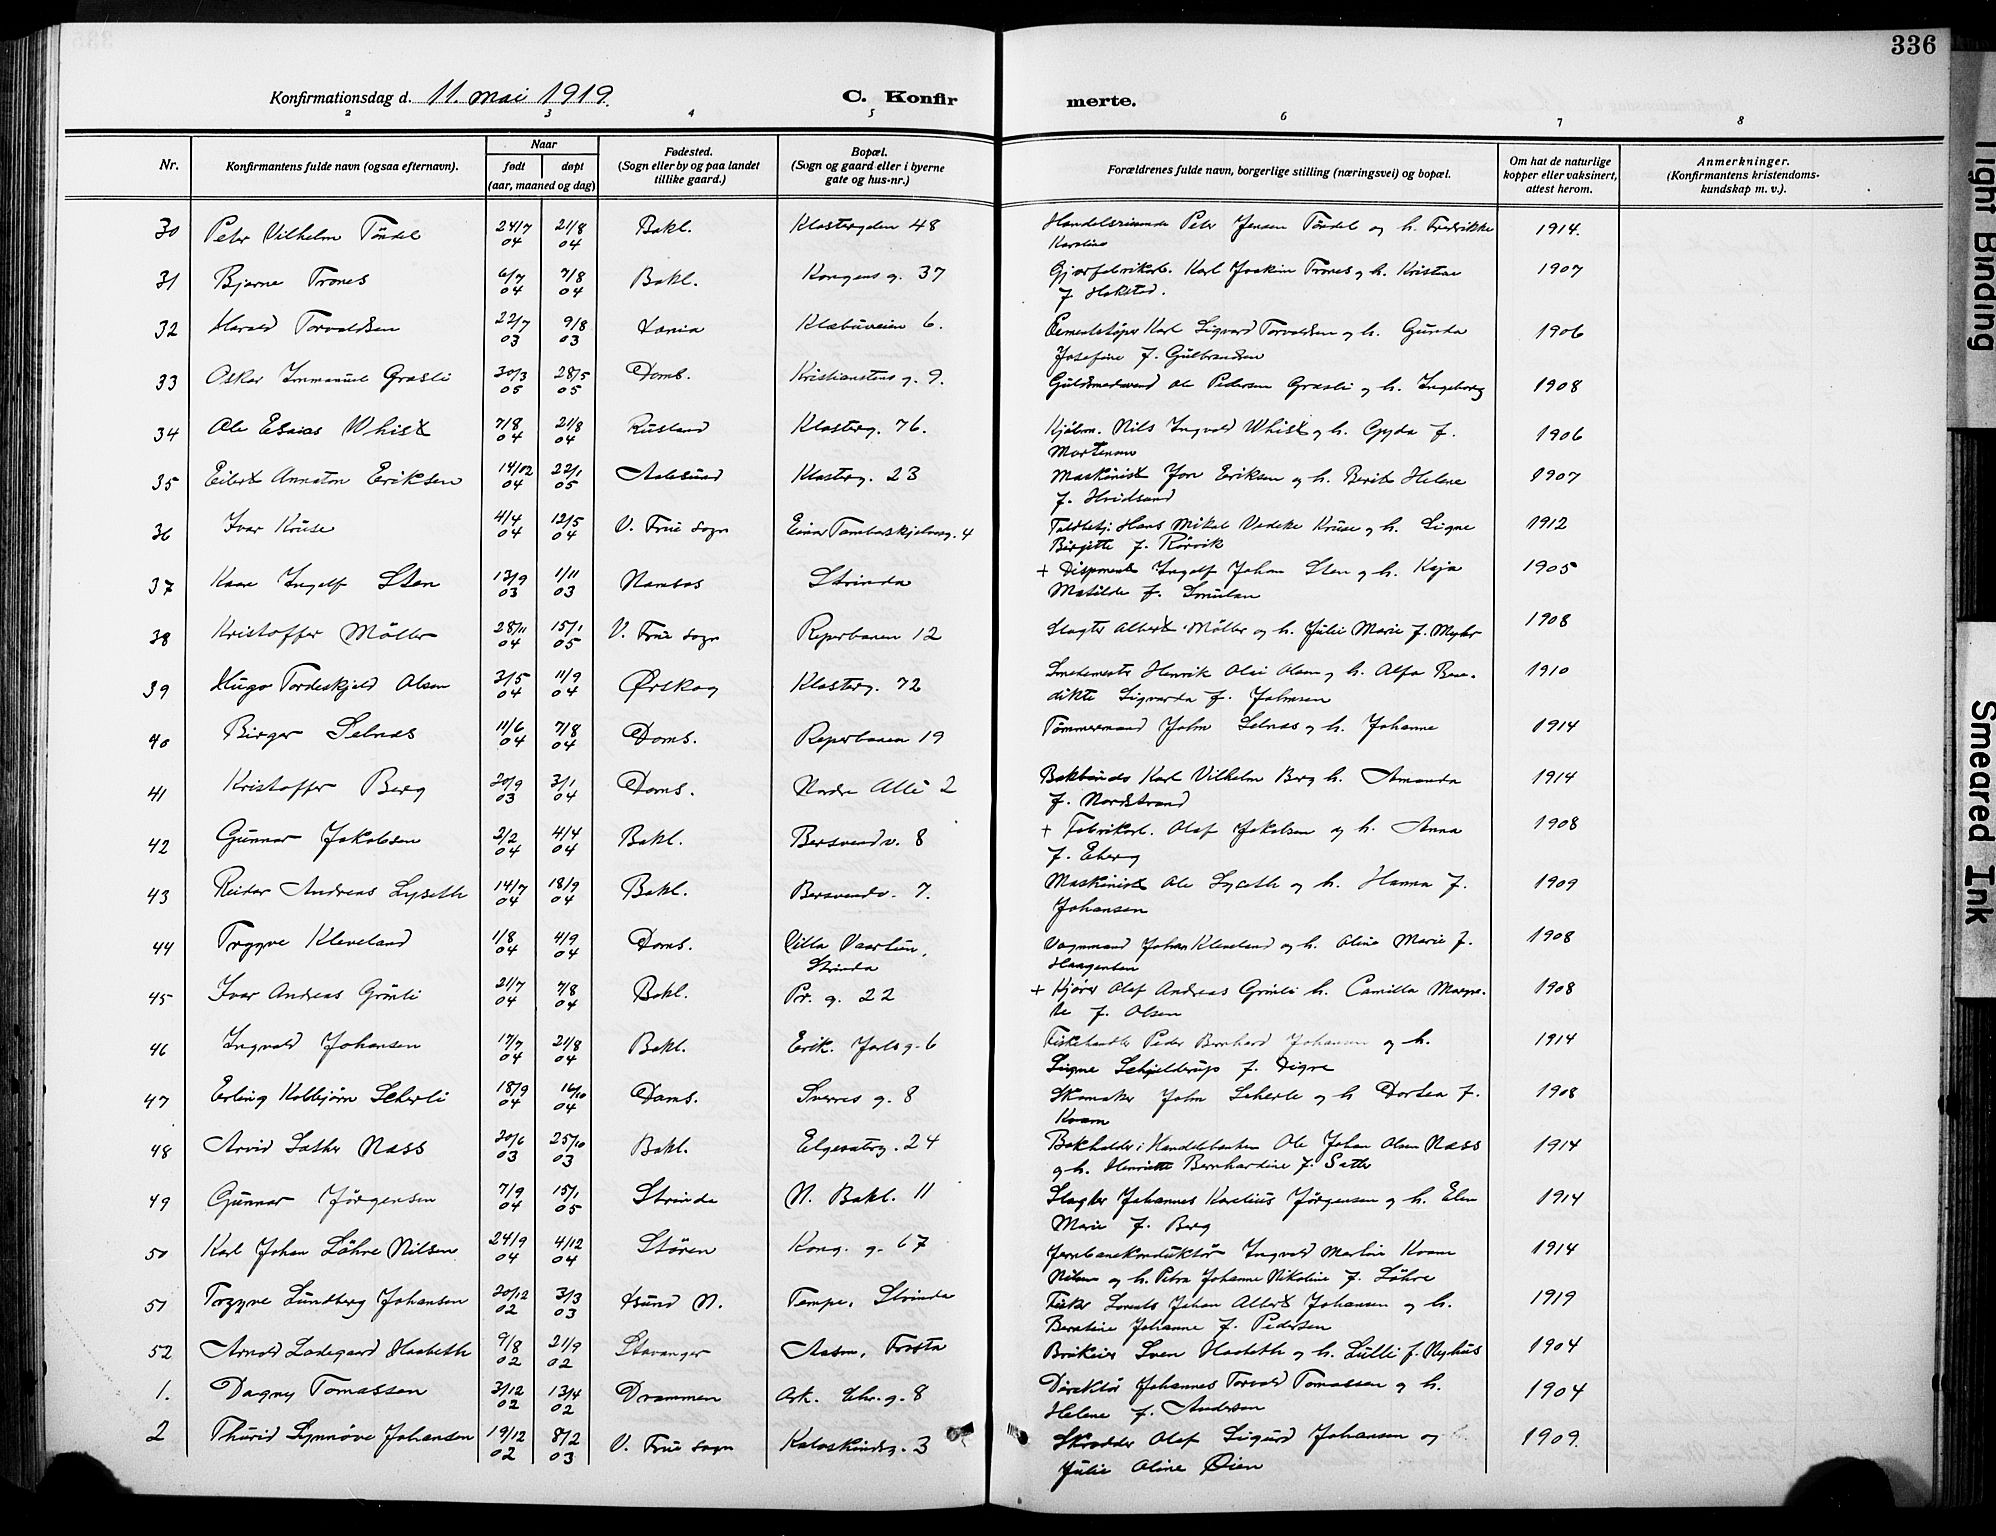 336
Konfirmationsdag d. 11. mai 1919.
C. Konfirmerte.
2 3 4 5 6 7 8
Nr.
Konfirmantens fulde navn (ogsaa efternavn).
Naar
født døpt
(aar, maaned og dag)
Fødested.
(Sogn eller by og paa landet
tillike gaard.)
Bopæl.
(Sogn og gaard eller i byerne
gate og hus-nr.)
Forældrenes fulde navn, borgerlige stilling (næringsvei) og bopæl.
Om hat de naturlige
kopper eller vaksinert,
attest herom.
Anmerkninger.
(Konfirmantens kristendoms-
kundskap m. v.).
30 Peter Vilhelm Töndel 24/7 04 21/8 04 Bakl. Klostergden 48 Handelsreisende Peter Jensen Töndel og h. Fredrikke 1914.
Karoline
31 Bjarne Trones 6/7 04 7/8 04 Bakl. Kongens g. 37 Karl Joakim Trones og h. Kristine 1907
f. Hokstad.
32 Harald Torvaldsen 22/7 03 9/8 03 Klæbuveien 6. Karl Sigvard Torvaldsen og h. Gunda 1906
Josefine f. Gulbrandsen
33 Oskar Immanuel Grasli 30/3 05 28/5 05 Doms. Kristianstens g. 9. Guldsmedsvend Ole Pedersen Grasli og h. Ingeborg 1908
34 Ole Esaias Whist 7/8 04 21/8 04 Rusland Klosterg. 76. Kjöbm. Nils Ingvald Whist og h. Gyda f. 1906
Mortenson
35 Eilert Annaton Eriksen 14/02 04 22/1 05 Aalesund Klosterg. 23 Maskinist Jon Eriksen og h. Berit Helene 1907
f. Hvidsand
36 Ivar Kruse 4/4 04 12/5 04 V. Frue sogn Einar Tambarskjelvesg. 4 Hans Mikal Vedeke Kruse og h. Signe 1912
Birgitte f. Rörvik
37 Kaare Ingolf Sten 13/9 03 1/11 03 Namsos Strinda + Disponent Ingolf Johan Sten og h. Kaja 1905
Matilde f.
38 Kristoffer Möller 28/11 04 15/1 05 V. Frue sogn Reperbanen 12 Slagter Albert Möller og h. Julie Marie f. Myhr 1908
39 Hugo Tordeskjold Olsen 3/5 04 11/9 04 Ørskog Klosterg. 72 Smedemestr Henrik Olai Olsen og h. Alfa Bene- 1910
dikte Sigvarda f. Johnsen
40 Birger Selnæs 11/6 04 7/8 04 Doms. Reperbanen 19 Tömmermand John Selnæs og h. Johanne 1914
41 Kristoffer Berg 20/9 03 3/1 04 Doms. Nordre Allé 2 Karl Vilhelm Berg h. Amanda 1914
f. Nordstrand
42 Gunnar Jakobsen 2/2 04 4/4 04 Bakl. Bersvendv. 8 + Fabrikarb. Olaf Jakobsen og h. Anna 1908
f. Eberg
43 Reidar Andreas Lyseth 14/7 04 18/9 04 Bakl. Bersvendv. 7. Maskinist Ole Lyseth og h. Hanna f. 1909
Johansen
44 Trygve Kleveland 1/8 04 4/9 04 Doms. Villa Vaartun, Vognmand Johan Kleveland og h. Oline Marie f. 1908
Strinda Haagensen
45 Ivar Andreas Grönli 21/7 04 7/8 04 Bakl. Pr. g. 22 + Kjörer Olaf Andreas Grönli h. Camilla Margre- 1908
te f. Olsen
46 Ingvald Johansen 17/7 04 21/8 04 Bakl. Erik. Jarls g. 6 Fiskehandler Peder Bernhard Johansen og h. 1914
Signe Schjelderup f. Digre
47 Erling Kolbjörn Scherli 18/9 04 16/10 04 Doms. Sverres g. 8 Skomaker John Scherle og h Dortea f. 1908
Kvam
48 Arvid Sæther Næss 20/6 03 25/10 03 Bakl. Elgesætrg. 24 Bokholder i Handelsbanken Ole Johan Olsen Næss 1914
og h. Henriette Bernhardine f. Sæter
49 Gunnar Jörgensen 7/9 04 15/1 05 Strinda N. Bakl. 11 Slagter Johannes Karelius Jörgensen og h. Elen 1914
Marie f. Berg
50 Karl Johan Löhre Nilsen 24/9 04 4/12 04 Stören Kong. g. 67 Jernbanekonduktör Ingvald Martin Kvam 1914
Nilsen og h. Petra Johanne Nikoline f. Löhre
51 Trygve Lundberg Johansen 20/12 02 3/3 03 Tempe, Strinda Fisker Lorents Johan Albert Johansen og h. 1919
Beratine Johanne f. Pedersen
52 Arnold Ladegaard Haabeth 9/8 02 21/9 02 Stavanger Aasen, Frosta Brökeier Sven Haabeth og h. Lulli f. Nyhus 1904
1. Dagny Tomassen 3/12 02 13/4 02 Drammen Ark. Chr. g. 8 Direktör Johannes Torvald Tomassen og h. 1904
Helene f. Andersen
2 Thurid Synnöve Johansen 19/12 02 8/2 03 V. Frue sogn Kalvskindsg. 3 Skrædder Olaf Sigurd Johansen og 1909.
Julie Oline Øien
Tight Binding
Smeared Ink